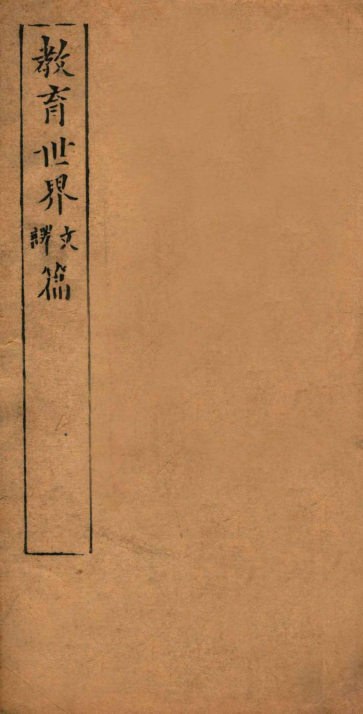 教育世界文譯篇